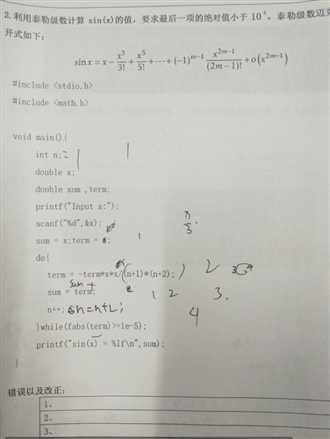 2. 利用泰勒级数计算 sin(x)的值，要求最后一项的绝对值小于 10⁻⁵。泰勒级数迈克
开式如下：
sin x = x - x³/3! + x⁵/5! + ··· + (-1)^(m-1) x^(2m-1)/(2m-1)! + o(x^(2m-1))
#include <stdio.h>
#include <math.h>
void main(){
int n;
double x;
double sum ,term;
printf("Input x:");
scanf("%d",&x);
sum = x;term =
do{
term = -term*x*x/(n+1)*(n+2);
sum = term;
sum +
n++; n=n+2;
}while(fabs(term)>=1e-5);
printf("sin(x) = %lf\n",sum);
}
n
3
1 2 3.
4
错误以及改正：
1、
2、
3、